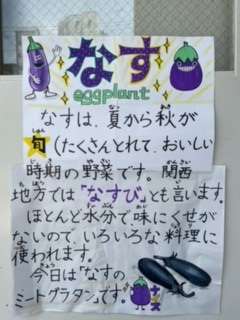 なす
eggplant
なすは、夏から秋が
旬(たくさんとれて、おいしい
時期の野菜です。関西
地方では「なすび」とも言います。
ほとんど水分で味にくせが
ないので、いろいろな料理に
使われます。
今日は「なすの
ミートグラタン」です。